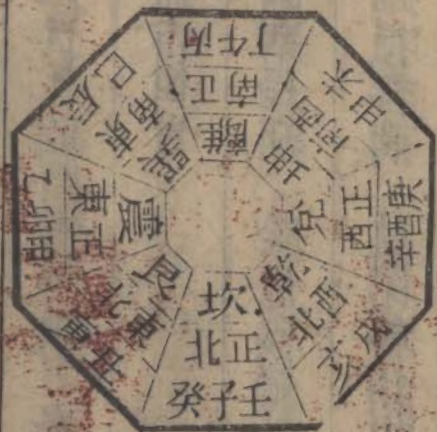 離
正南
丙午丁
坤
西南
未申
兌
正西
庚酉辛
乾
西北
戌亥
坎
正北
壬子癸
艮
東北
丑寅
震
正東
甲卯乙
巽
東南
辰巳